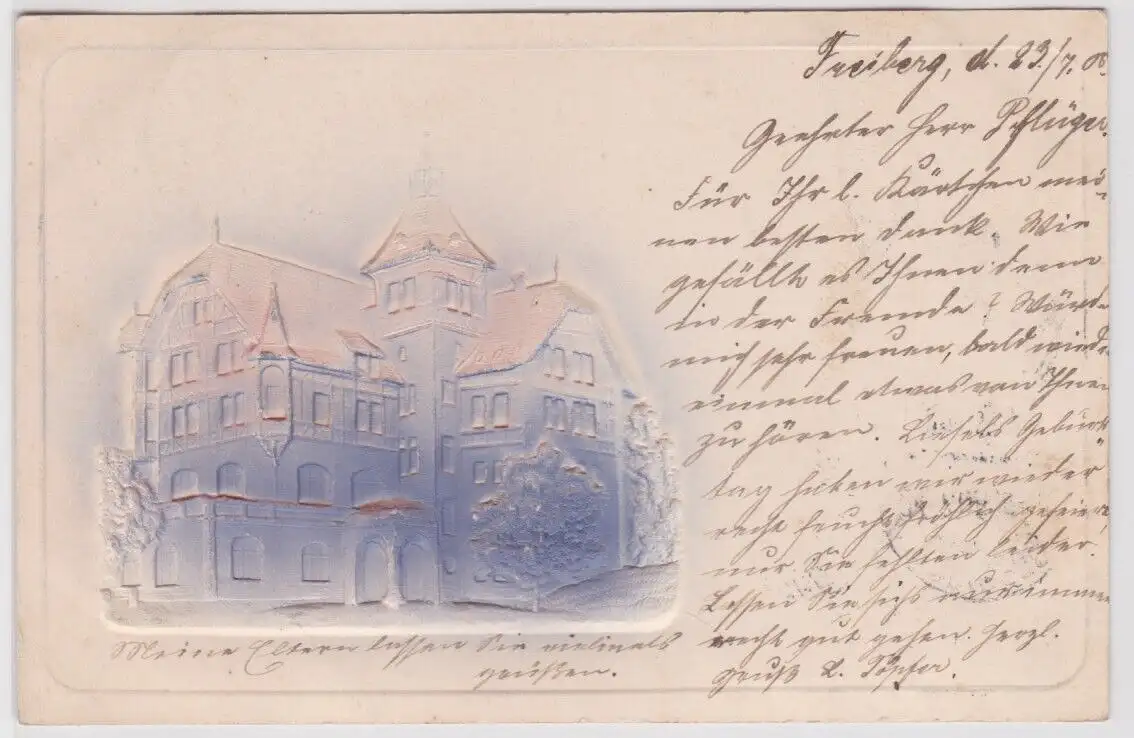 Freiberg, d. 23./7. 05.
Geehrter Herr Pflüger.
Für Ihr l. Kärtchen mei-
nen besten Dank. Wie
gefällt es Ihnen denn
in der Fremde? Würde
mich sehr freuen, bald wieder
einmal etwas von Ihnen
zu hören. Liesels Geburts-
tag haben wir wieder
recht feucht fröhlich gefeiert
nur Sie fehlten leider.
Lassen Sie sichs nur immer
recht gut gehen. Herzl.
Gruß L. Töpfer.
Meine Eltern lassen Sie vielmals
grüßen.